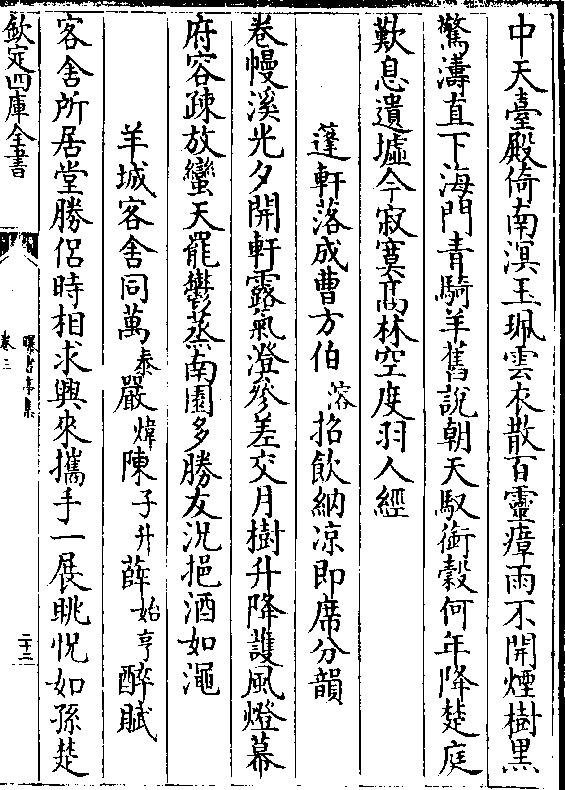 中天臺殿倚南溟玉珮雲衣散百靈瘴雨不開煙樹黒
驚濤直下海門青騎羊舊說朝天馭銜榖何年降楚庭
歎息遺墟今寂寞髙林空度羽人經
蓬軒落成曹方伯溶招飲納凉即席分韻
卷幔溪光夕開軒露氣澄參差交月樹升降䕶風燈幕
府容疎放蠻天罷鬱蒸南園多勝友況挹酒如澠
羊城客舎同萬泰嚴煒陳子升薛始亨醉賦
客舎所居堂勝侣時相求興來攜手一展眺恍如孫楚
欽定四庫全書
曝書亭集
卷三
二十二